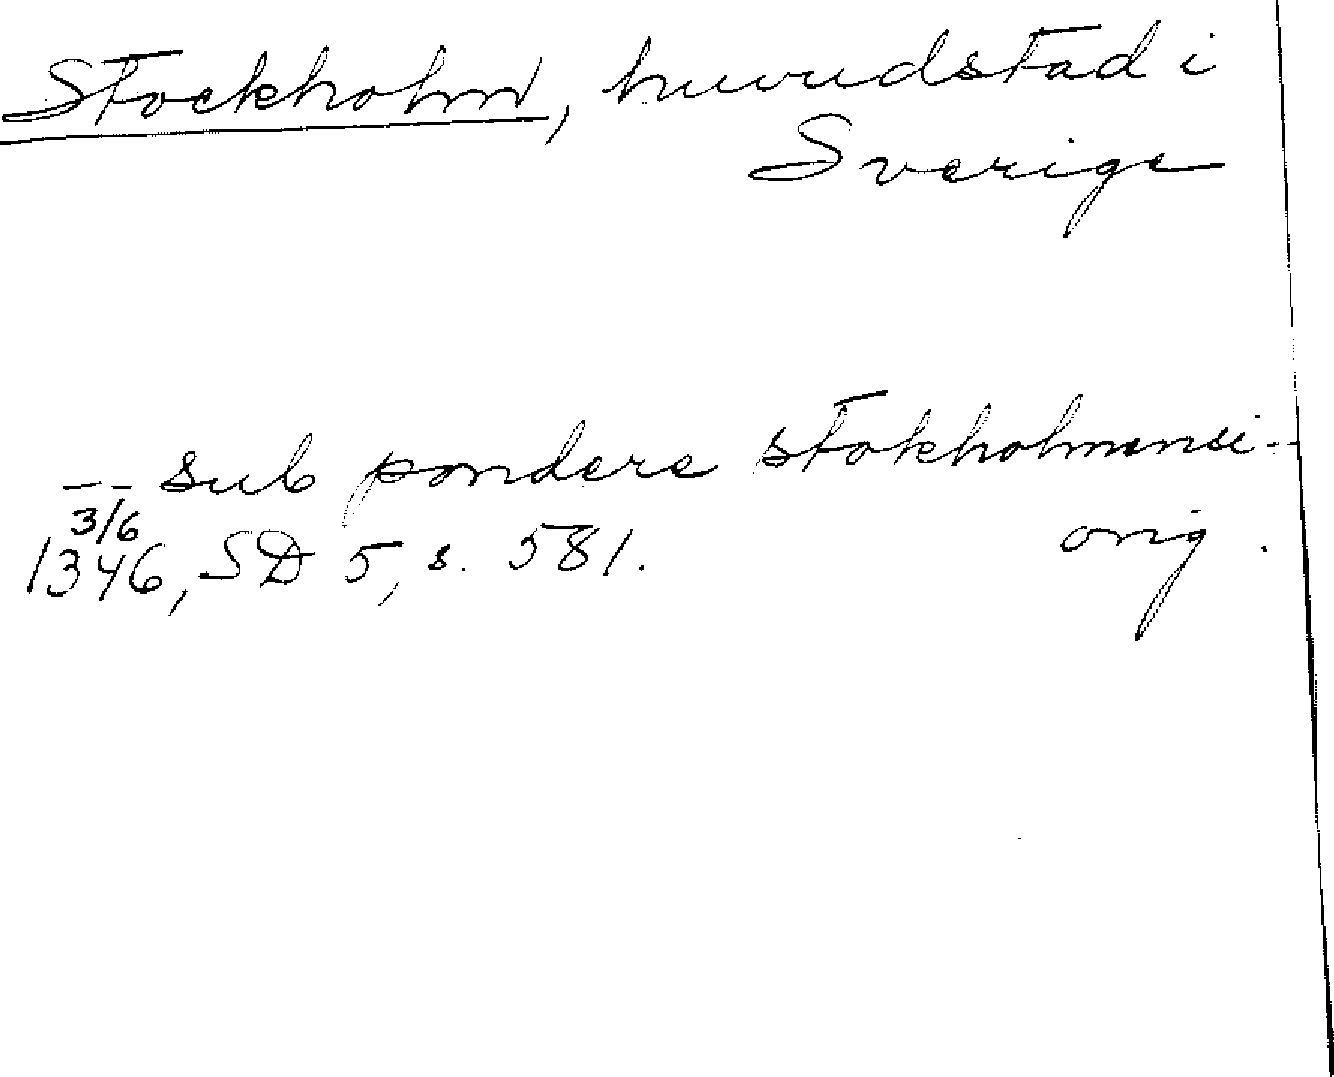 Stockholm, huvudstad i
Sverige
-- sub pondere stokholmensi--
3/6
1346, SD 5, s. 581. orig.